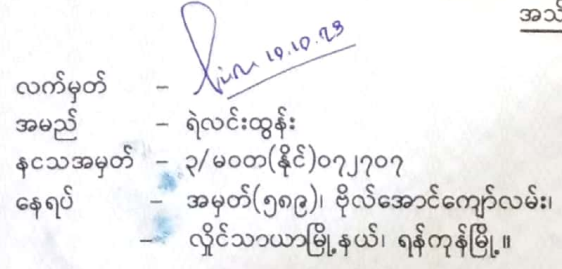 အသိ
10.10.23
လက်မှတ် -
အမည် - ရဲလင်းထွန်း
နငသအမှတ် - ၃/မဝတ(နိုင်)၀၇၂၇၀၇
နေရပ် - အမှတ်(၅၈၉)၊ ဗိုလ်အောင်ကျော်လမ်း၊
- လှိုင်သာယာမြို့နယ်၊ ရန်ကုန်မြို့။